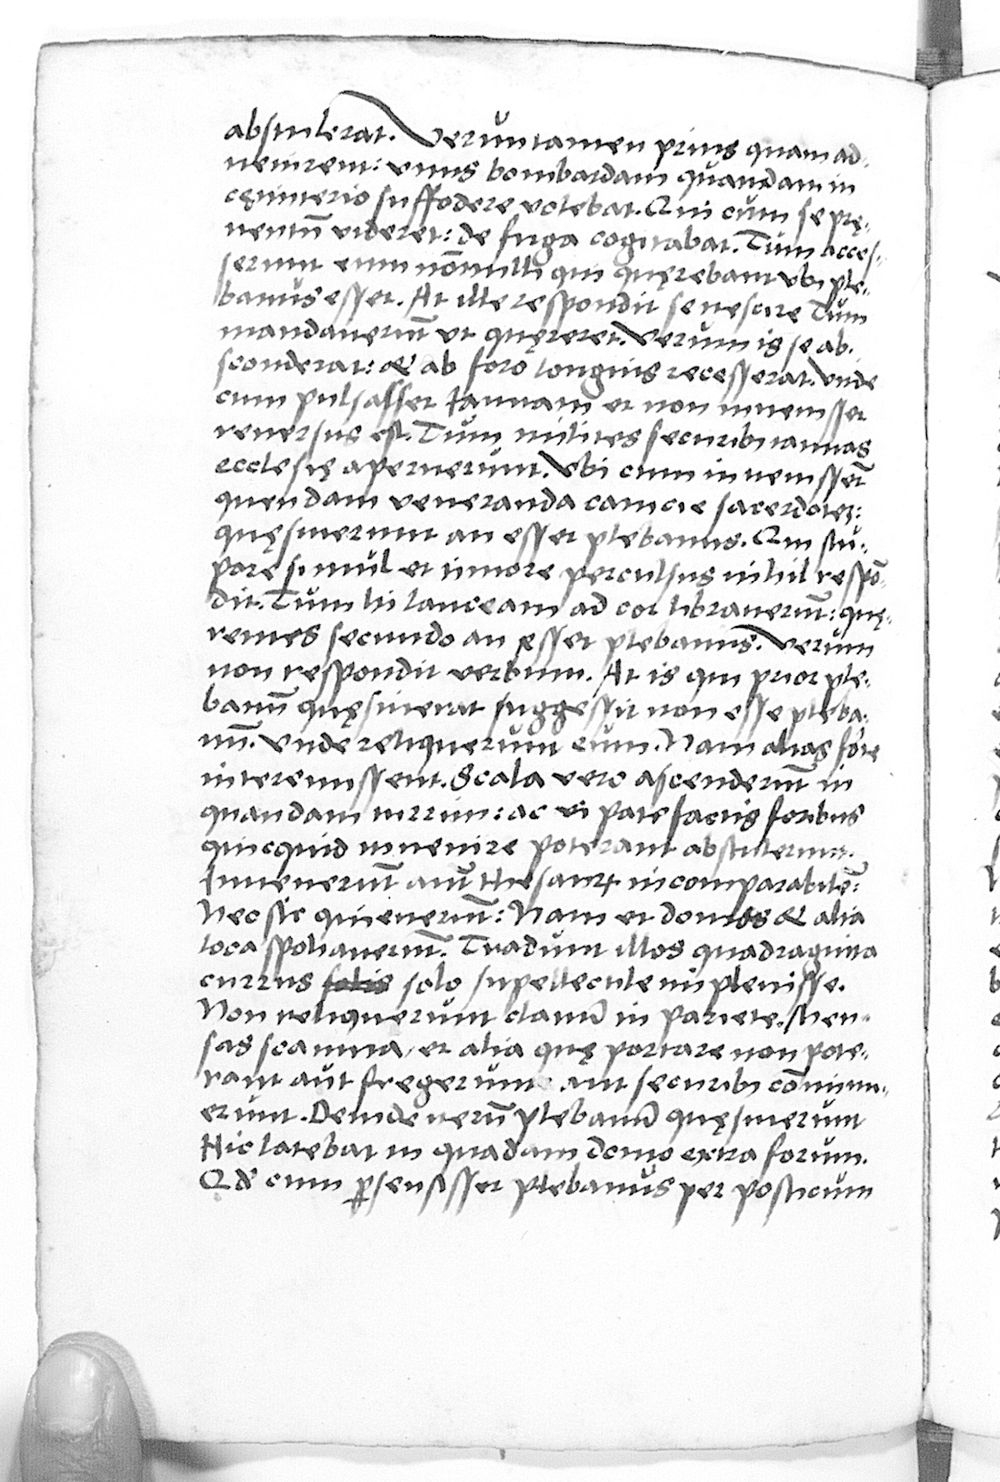 abstulerat. Veruntamen prius quam ad-
uenirent: vnus bombardam quandam in
cęmiterio suffodere volebat. Qui cum se prę-
uentū videret: de fuga cogitabat. Tum acces-
serunt eum nōnulli qui quęrebant vbi ple-
banus esset. At ille respondit se nescire Tum
mandauerūt vt quęreret. Verum is se ab-
sconderat: & ab foro longius recesserat. Vnde
cum pulsasset Ianuam et non inuenisset
reuersus est. Tum milites securibus ianuas
ecclesię aperuerunt. Vbi cum inuenissēt
quendam veneranda canicie sacerdotez:
quęsiuerunt an esset plebanus. Qui stu-
pore simul et timore perculsus nihil respō-
dit. Tum hi lanceam ad cor librauerūt: quę-
rentes secundo an esset plebanus. Verum
non respondit verbum. At is qui prior ple-
banū quęsiuerat suggessit non esse pleba-
nū. Vnde reliquerunt eum. Nam alias fore
interemissent. Scala vero ascenderūt in
quandam turrim: ac vi patefactis foribus
quicquid inuenire poterant abstulerunt.
Inuenerūt aut thesaurū incomparabilē:
Nec sic quieuerūt: Nam et domos & alia
loca spoliauerūt. Tradunt illos quadraginta
currus solo supellectile impleuisse.
Non reliquerunt clauū in pariete. Men-
sas scamna, et alia quę portare non pote-
rant aut fregerunt aut securibus cōminu-
erunt. Deinde verū plebanū quęsiuerunt
Hic latebat in quadam domo extra forum.
Qd cum psensisset plebanus per posticum